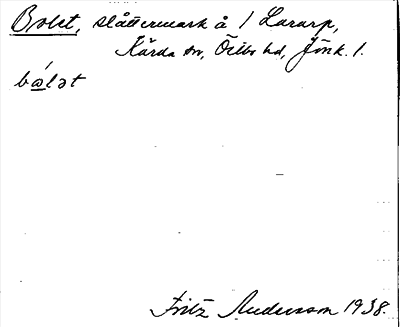 Bolet, slåttermark å 1 Lararp,
Kärda sn, Östbo hd, Jönk. l.
bωlət
Fritz Andersson 1938.